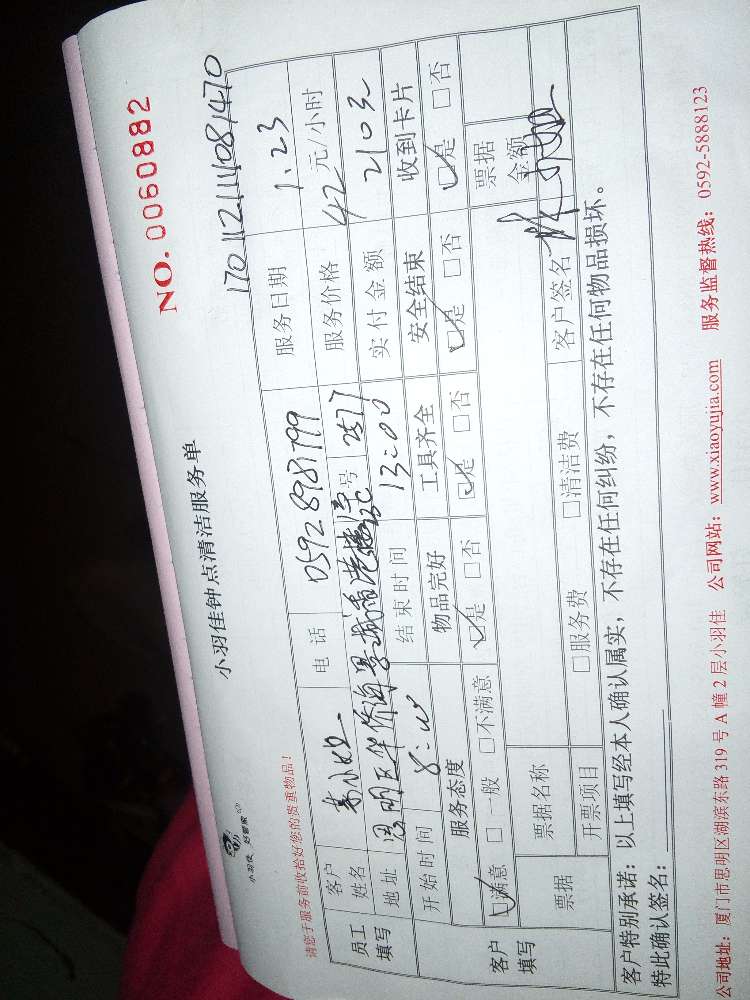 NO. 0060882
小羽佳 好管家
小羽佳钟点清洁服务单
1701121114081470
请您于服务前收拾好您的贵重物品！
员工填写
客户姓名
电话 0592 8981799
服务日期 1.23
地址 思明区华侨海景城香港楼
号 2577
服务价格 42 元/小时
开始时间 8:00
结束时间 13:00
实付金额 210元
客户填写
服务态度 物品完好 工具齐全 安全结束 收到卡片
☑满意 □一般 □不满意 ☑是 □否 ☑是 □否 ☑是 □否 ☑是 □否
票据
票据名称
票据金额
开票项目 □服务费 □清洁费
客户签名
客户特别承诺：以上填写经本人确认属实，不存在任何纠纷，不存在任何物品损坏。
特此确认签名：
公司地址：厦门市思明区湖滨东路 319 号 A 幢 2 层小羽佳 公司网站：www.xiaoyujia.com 服务监督热线：0592-5888123